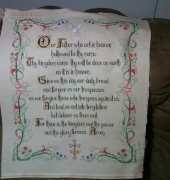 Our Father who art in heaven,
hallowed be thy name.
Thy kingdom come, thy will be done on earth
as it is in heaven.
Give us this day our daily bread,
and forgive us our trespasses
as we forgive those who trespass against us.
And lead us not into temptation
but deliver us from evil.
For thine is the kingdom and the power
and the glory forever. Amen.